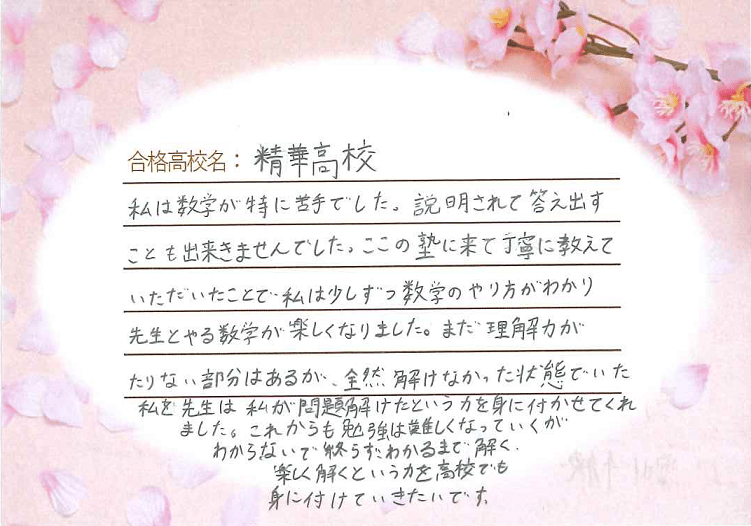 合格高校名：精華高校
私は数学が特に苦手でした。説明されて答え出す
ことも出来きませんでした。ここの塾に来て丁寧に教えて
いただいたことで私は少しずつ数学のやり方がわかり
先生とやる数学が楽しくなりました。まだ理解力が
たりない部分はあるが、全然解けなかった状態でいた
私を先生は私が問題解けたという力を身に付かせてくれ
ました。これからも勉強は難しくなっていくが
わからないで終らずわかるまで解く、
楽しく解くという力を高校でも
身に付けていきたいです。